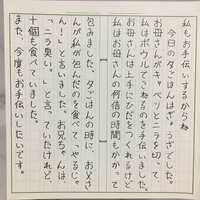 私もお手伝いするからね
今日の夕ごはんは、ぎょうざでした。
お母さんがキャベツとニラを切って、
私はボウルでこねるのを手伝いました。
お母さんは上手にひだをつくれるけど
私はお母さんの何倍の時間もかかって
包みました。夕ごはんの時に、お父さ
んが私が包んだのを食べて「やるじゃ
ん！」と言いました。お兄ちゃんは
「ニラ臭い。」と言っていたけれど
十個も食べていました。
また、今度もお手伝いしたいです。